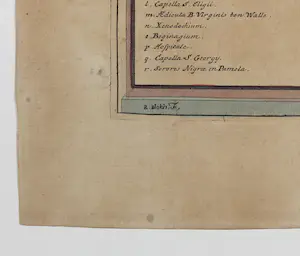 l. Capella S. Eligii.
m. Ædicula B. Virginis ten Walle.
n. Xenodochium.
o. Beginagium.
p. Hospitale.
q. Capella S. Georgy.
r. Sorores Nigræ in Pamela.